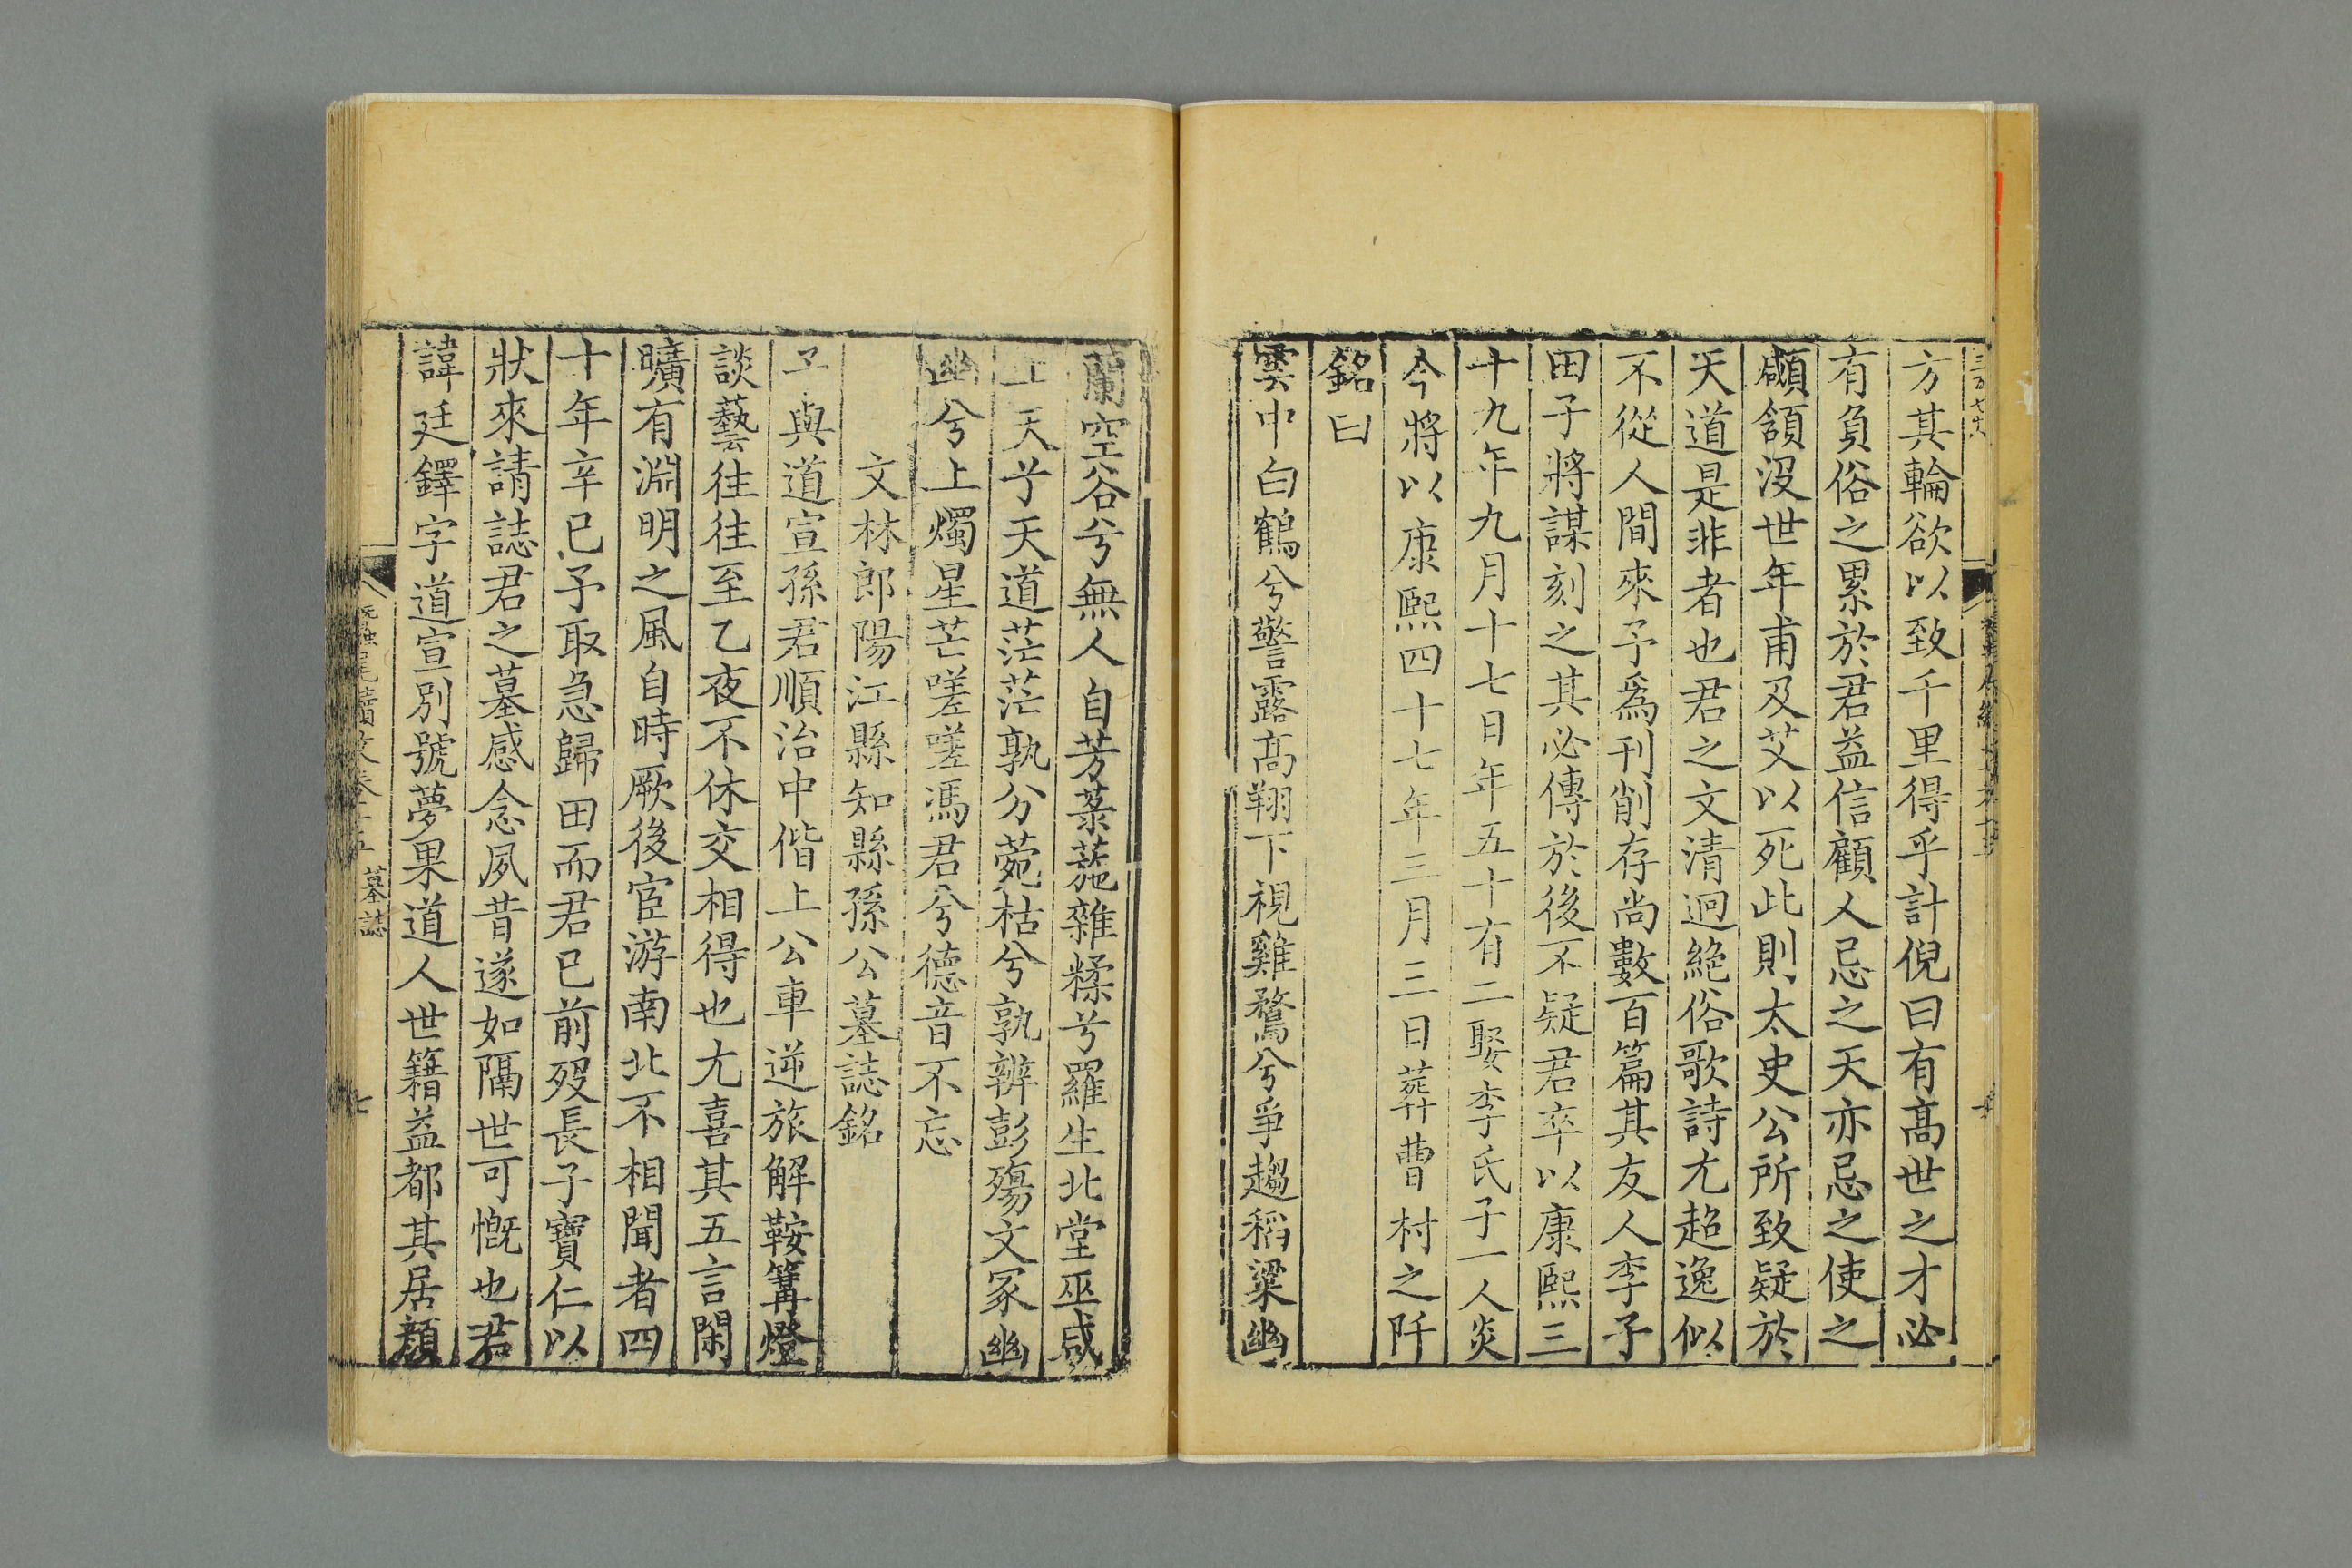 方其輪欲以致千里得乎計倪曰有高世之才必
有負俗之累於君益信顧人忌之天亦忌之使之
顑頷沒世年甫及艾以死此則太史公所致疑於
天道是非者也君之文清迥絶俗歌詩尤超逸似
不從人間來予爲刊削存尚數百篇其友人李子
田子將謀刻之其必傳於後不疑君卒以康熙三
十九年九月十七日年五十有二娶李氏子一人炎
今將以康熙四十七年三月三日葬曹村之阡
銘曰
雲中白鶴兮警露高翔下視雞鶩兮爭趨稻粱幽
蘭空谷兮無人自芳菉葹雜糅兮羅生北堂巫咸
上天兮天道茫茫孰分菀枯兮孰辨彭殤文冢幽
幽兮上燭星芒嗟嗟馮君兮德音不忘
文林郎陽江縣知縣孫公墓誌銘
予與道宣孫君順治中偕上公車逆旅解鞍篝燈
談藝往往至乙夜不休交相得也尤喜其五言閑
曠有淵明之風自時厥後宦游南北不相聞者四
十年辛巳予取急歸田而君已前歿長子寶仁以
狀來請誌君之墓感念夙昔遂如隔世可慨也君
諱廷鐸字道宣別號夢果道人世籍益都其居顏
蠶尾續文卷十五 墓誌 七